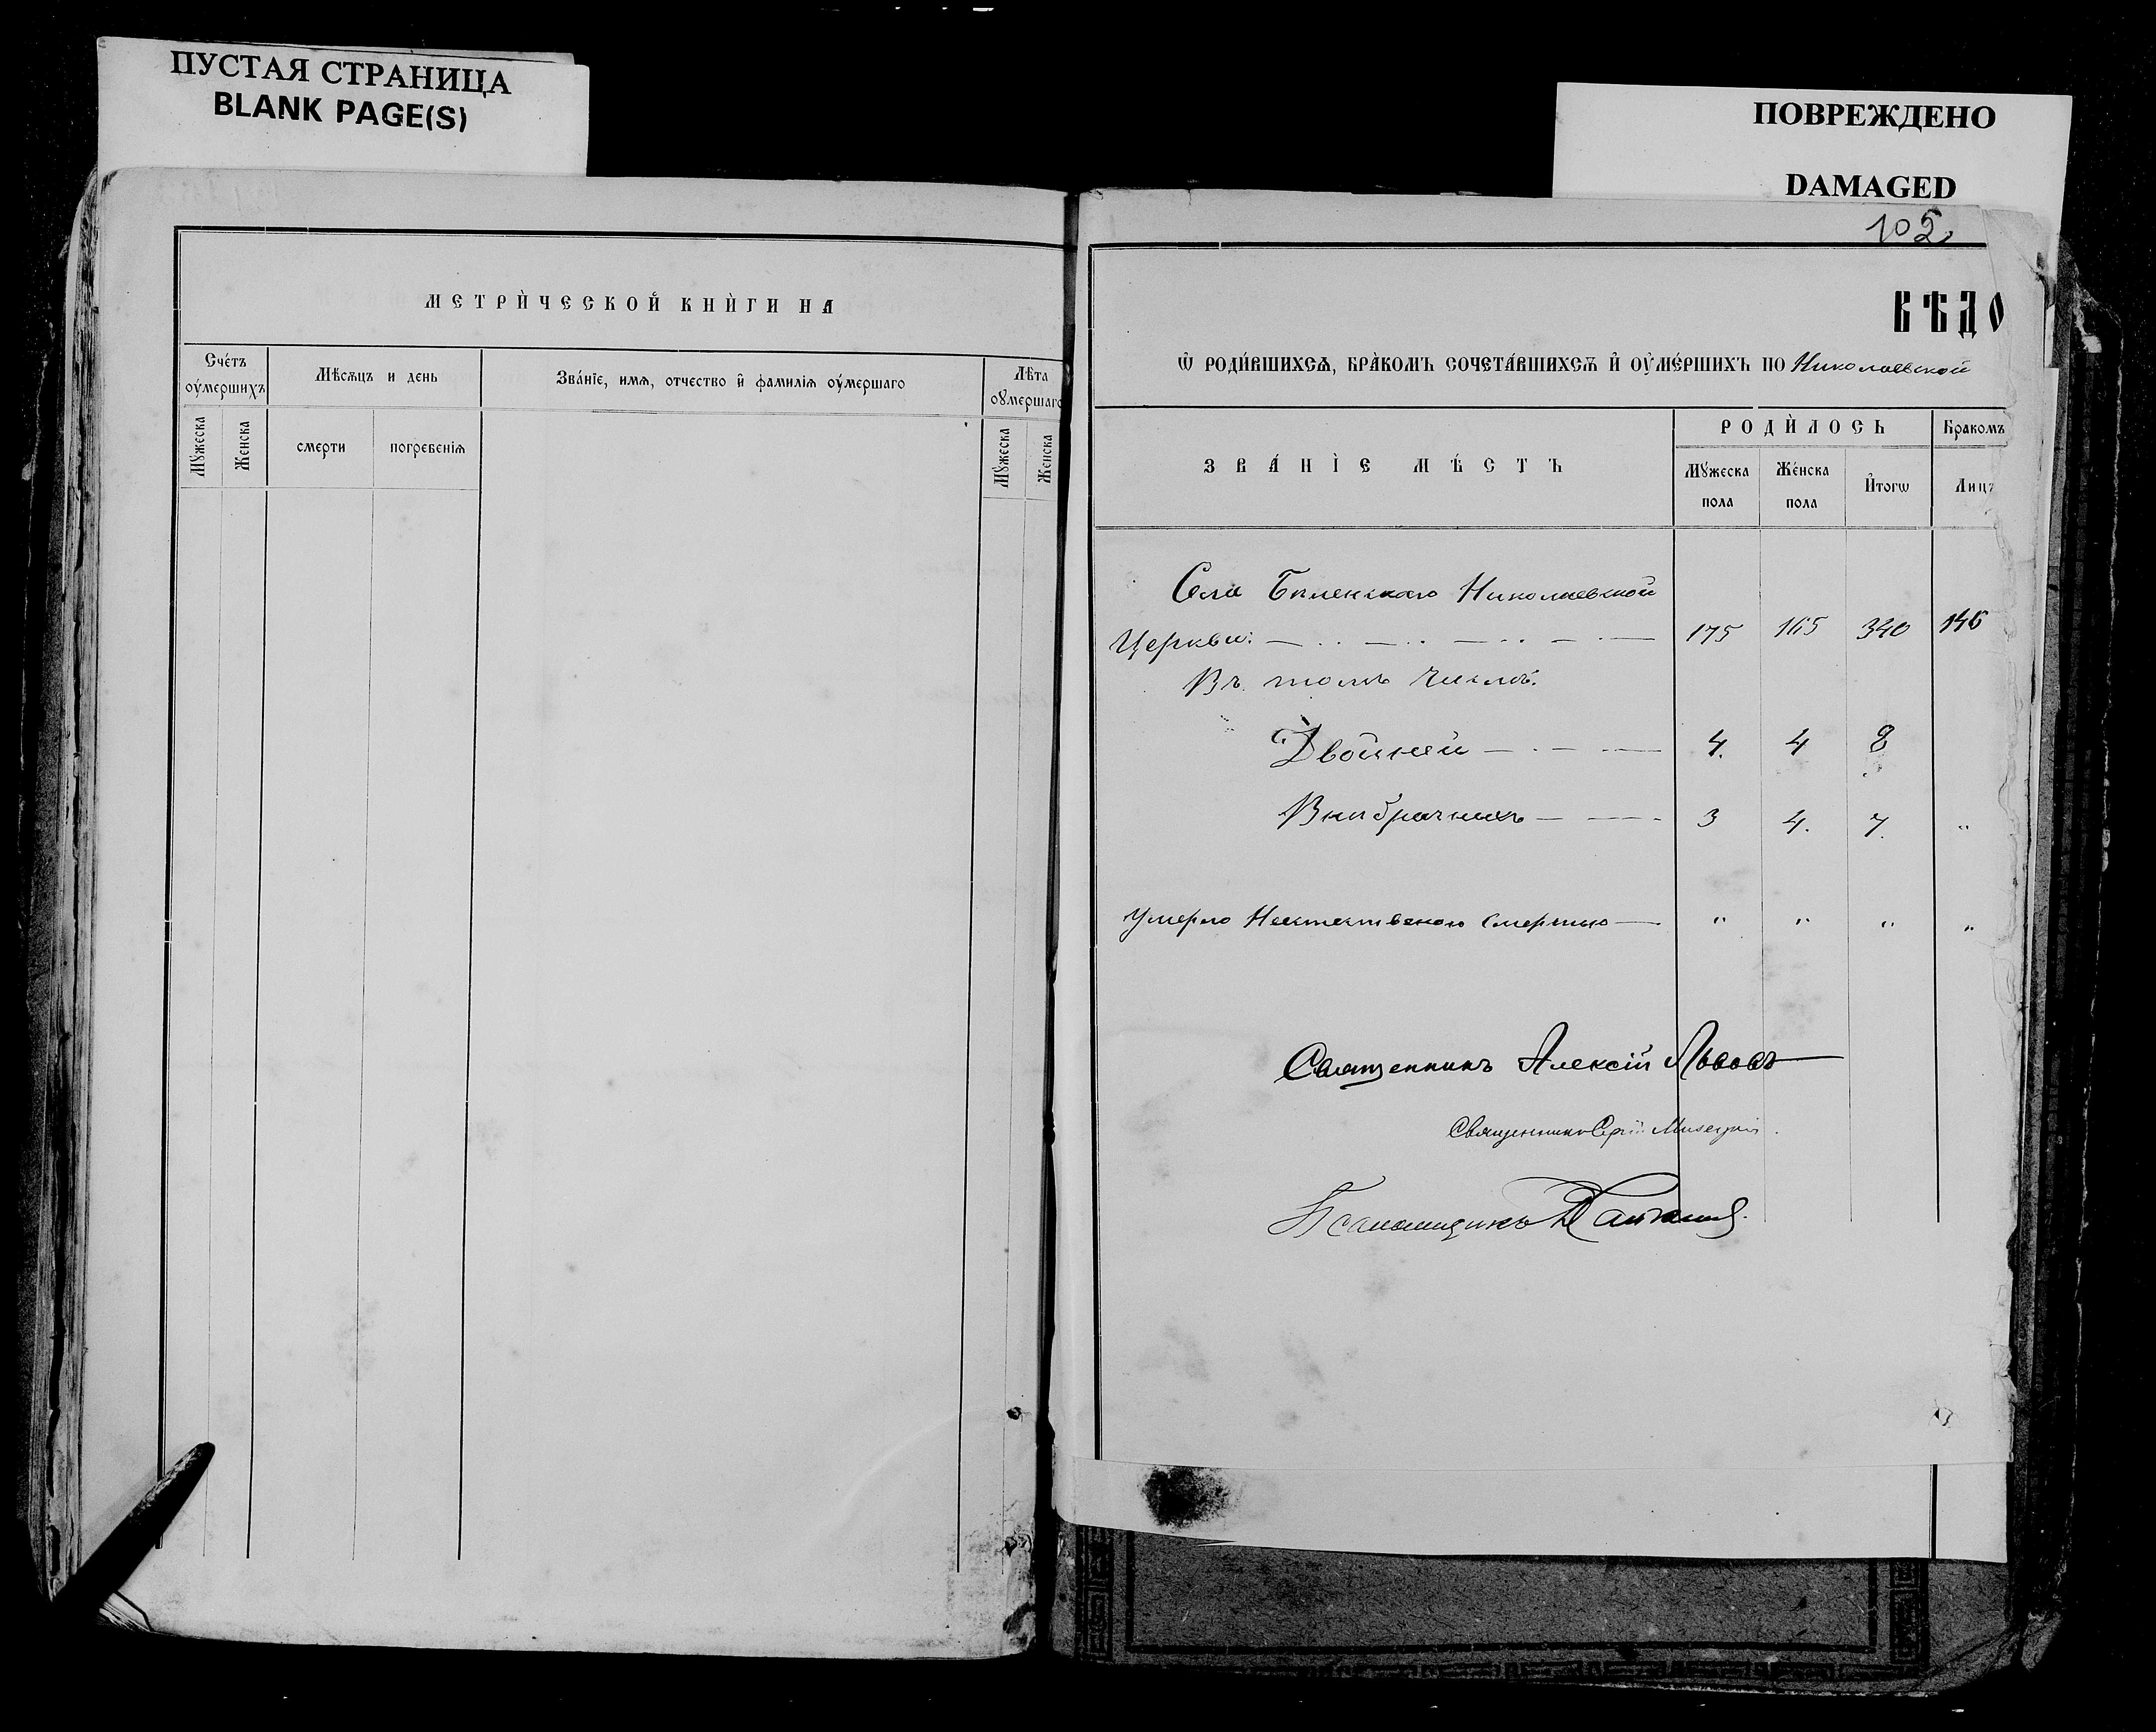 ПУСТАЯ СТРАНИЦА
BLANK PAGE(S)
ПОВРЕЖДЕНО
DAMAGED
МЕТРИ́ЧЕСКОЙ КНИ́ГИ НА
Сче́тъ оу҆ме́ршихъ
Мѣсѧцъ и день
Зва́нїе, имѧ, отчество и҆ фамилїѧ оу҆мершаго
Лѣта оумершаго
Мꙋжеска
Женска
смерти
погребенїѧ
Мꙋжеска
Женска
105
ВѢДО
Ѡ҆ РОДИ́ВШИХСѦ, БРА́КОМЪ СОЧЕТА́ВШИХСѦ И҆ ОУ҆МЕ́РШИХЪ ПО Николаевской
ЗВА́НЇЕ МѢ́СТЪ
РОДИ́ЛОСЬ
Бракомъ
Мꙋжеска пола
Же́нска пола
И҆тогѡ
Лицъ
Села Бѣленькаго Николаевской
Церкви: 175 165 340 146
Въ томъ числѣ:
Двойней 4. 4 8
Внѣбрачныхъ 3 4. 7. "
Умерло Неестественою смертью " " " "
Священникъ Алексій Львовъ
Священникъ Сергій
Псаломщикъ